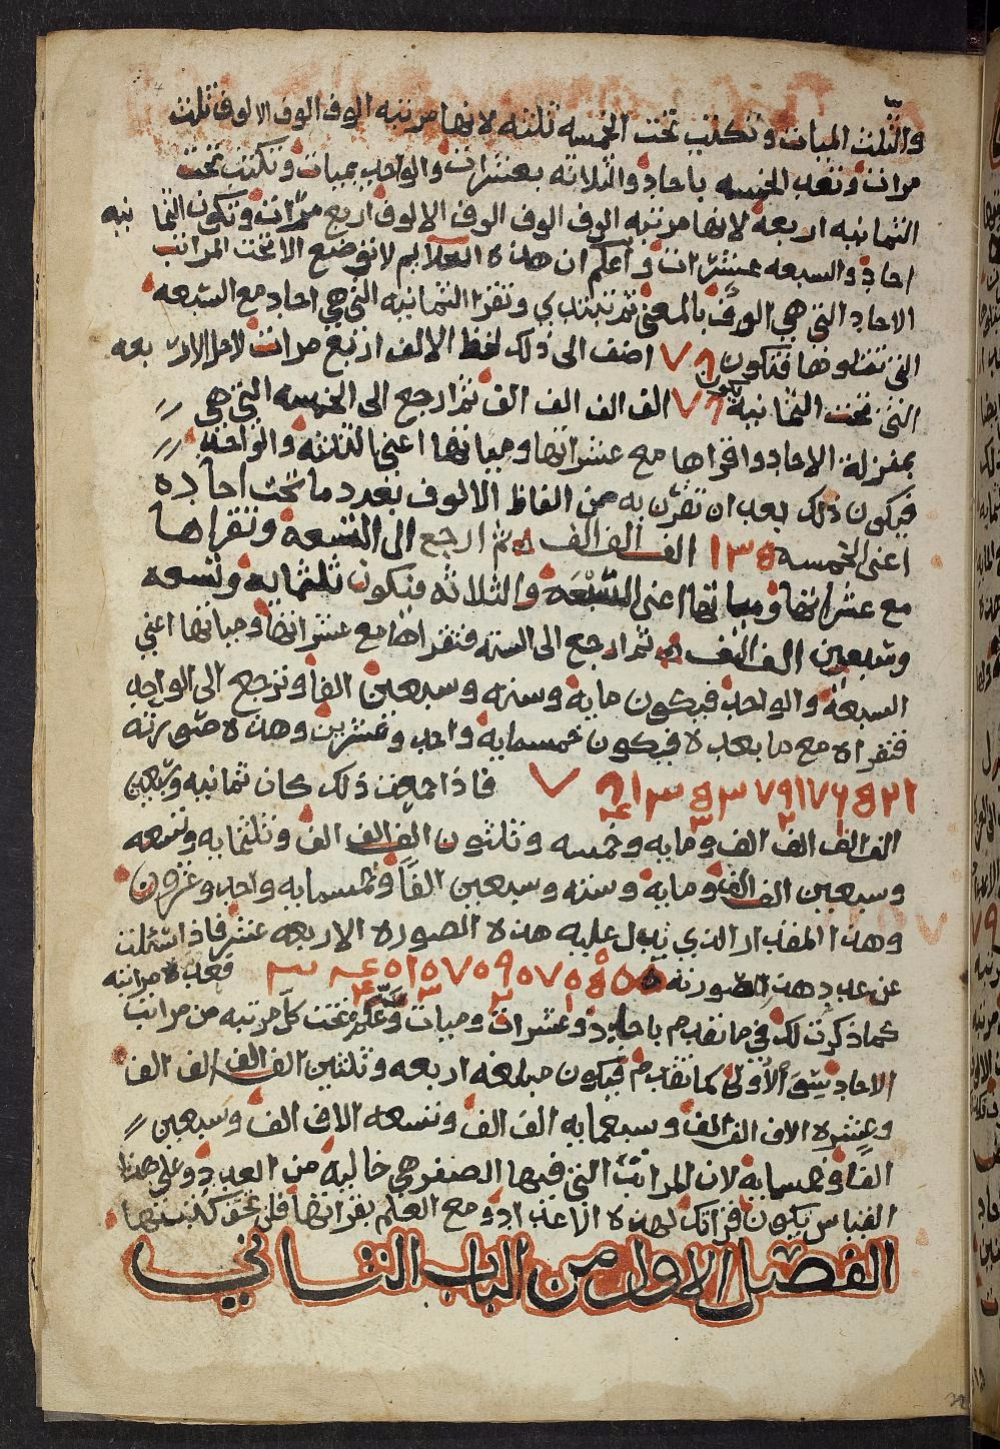 والثلث الميات وتكتب تحت الخمسه ثلثه لانها مرتبه الوف الوف الالوف ثلث
مرات وتعد الخمسه باحاد والثلاثه بعشرات والواحد بميات وتكتب تحت
الثمانيه اربعه لانها مرتبه الوف الوف الوف الالوف اربع مرات وتكون الثما نيه
احاد والسبعه عشرات واعلم ان هذه العلايم لا توضع الا تحت المراتب
الاحاد التي هي الوف بالمعنى ثم تبتدي وتقرا الثمانيه التي هي احاد مع السبعه
التي تتلوها فتكون ٧٨ اضف الى ذلك لفظ الالف اربع مرات لاجل الار بعه
التي تحت الثمانيه تكون ٧٨ الف الف الف الف ثم ارجع الى الخمسه التي هي
بمنزلة الاحاد واقراها مع عشراتها ومياتها اعني الثلثه والواحد
فيكون ذلك بعد ان تقرن به من الفاظ الالوف بعدد ما تحت احاده
اعني الخمسه ١٣٥ الف الف الف ثم ارجع الى التسعه وتقراها
مع عشراتها ومياتها اعني السبعه والثلاثه فتكون ثلثمايه وتسعه
وسبعين الف الف ثم ارجع الى السته فتقراها مع عشراتها ومياتها اعني
السبعه والواحد فيكون مايه وسته وسبعين الفا وترجع الى الواحد
فتقراه مع ما بعده فيكون خمسمايه واحد وعشرين وهذه صورته
٧٨١٣٥٣٧٩١٧٦٥٢١ فاذا جمعت ذلك كان ثمانيه وسبعين
الف الف الف الف ومايه وخمسه وثلثون الف الف الف وثلثمايه وتسعه
وسبعين الف الف ومايه وسته وسبعين الفا وخمسمايه واحد وعشرون
وهذا المقدار الذي يدل عليه هذه الصوره الاربعه عشر فاذا سئلت
عن عدد هذه الصورته فعد مراتبه
كما ذكرت لك في ما تقدم باحاد وعشرات وميات وعلم تحت كل مرتبه من مراتب
الاحاد سوى الاولى كما تقدم فيكون مبلغه اربعه وثلثين الف الف الف الف
وعشره الاف الف الف وسبعمايه الف الف وتسعه الاف الف وسبعين
الفا وخمسمايه لان المراتب التي فيها الصفر هي خاليه من العدد وعلى هذا
القياس يكون قراتك لهذه الاعداد ومع العلم بقراتها فلن تحق كتبتها
الفصل الاول من الباب الثاني